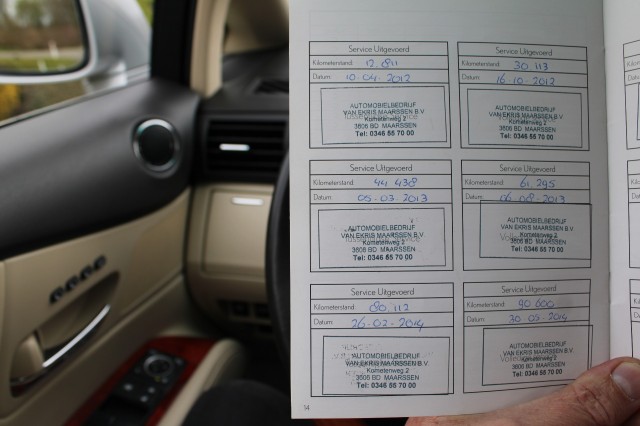 Service Uitgevoerd
Kilometerstand: 12.811
Datum: 10-04-2012
AUTOMOBIELBEDRIJF
VAN EKRIS MAARSSEN B.V.
Kometenweg 2
3606 BD MAARSSEN
Tel: 0346 55 70 00
Service Uitgevoerd
Kilometerstand: 30.113
Datum: 16-10-2012
AUTOMOBIELBEDRIJF
VAN EKRIS MAARSSEN B.V.
Kometenweg 2
3606 BD MAARSSEN
Tel: 0346 55 70 00
Service Uitgevoerd
Kilometerstand: 44.438
Datum: 05-03-2013
AUTOMOBIELBEDRIJF
VAN EKRIS MAARSSEN B.V.
Kometenweg 2
3606 BD MAARSSEN
Tel: 0346 55 70 00
Service Uitgevoerd
Kilometerstand: 61.295
Datum: 06-08-2013
AUTOMOBIELBEDRIJF
VAN EKRIS MAARSSEN B.V.
Kometenweg 2
3606 BD MAARSSEN
Tel: 0346 55 70 00
Service Uitgevoerd
Kilometerstand: 80.112
Datum: 26-02-2014
AUTOMOBIELBEDRIJF
VAN EKRIS MAARSSEN B.V.
Kometenweg 2
3606 BD MAARSSEN
Tel: 0346 55 70 00
Service Uitgevoerd
Kilometerstand: 90.600
Datum:
AUTOMOBIELBEDRIJF
VAN EKRIS MAARSSEN B.V.
Kometenweg 2
3606 BD MAARSSEN
Tel: 0346 55 70 00
14